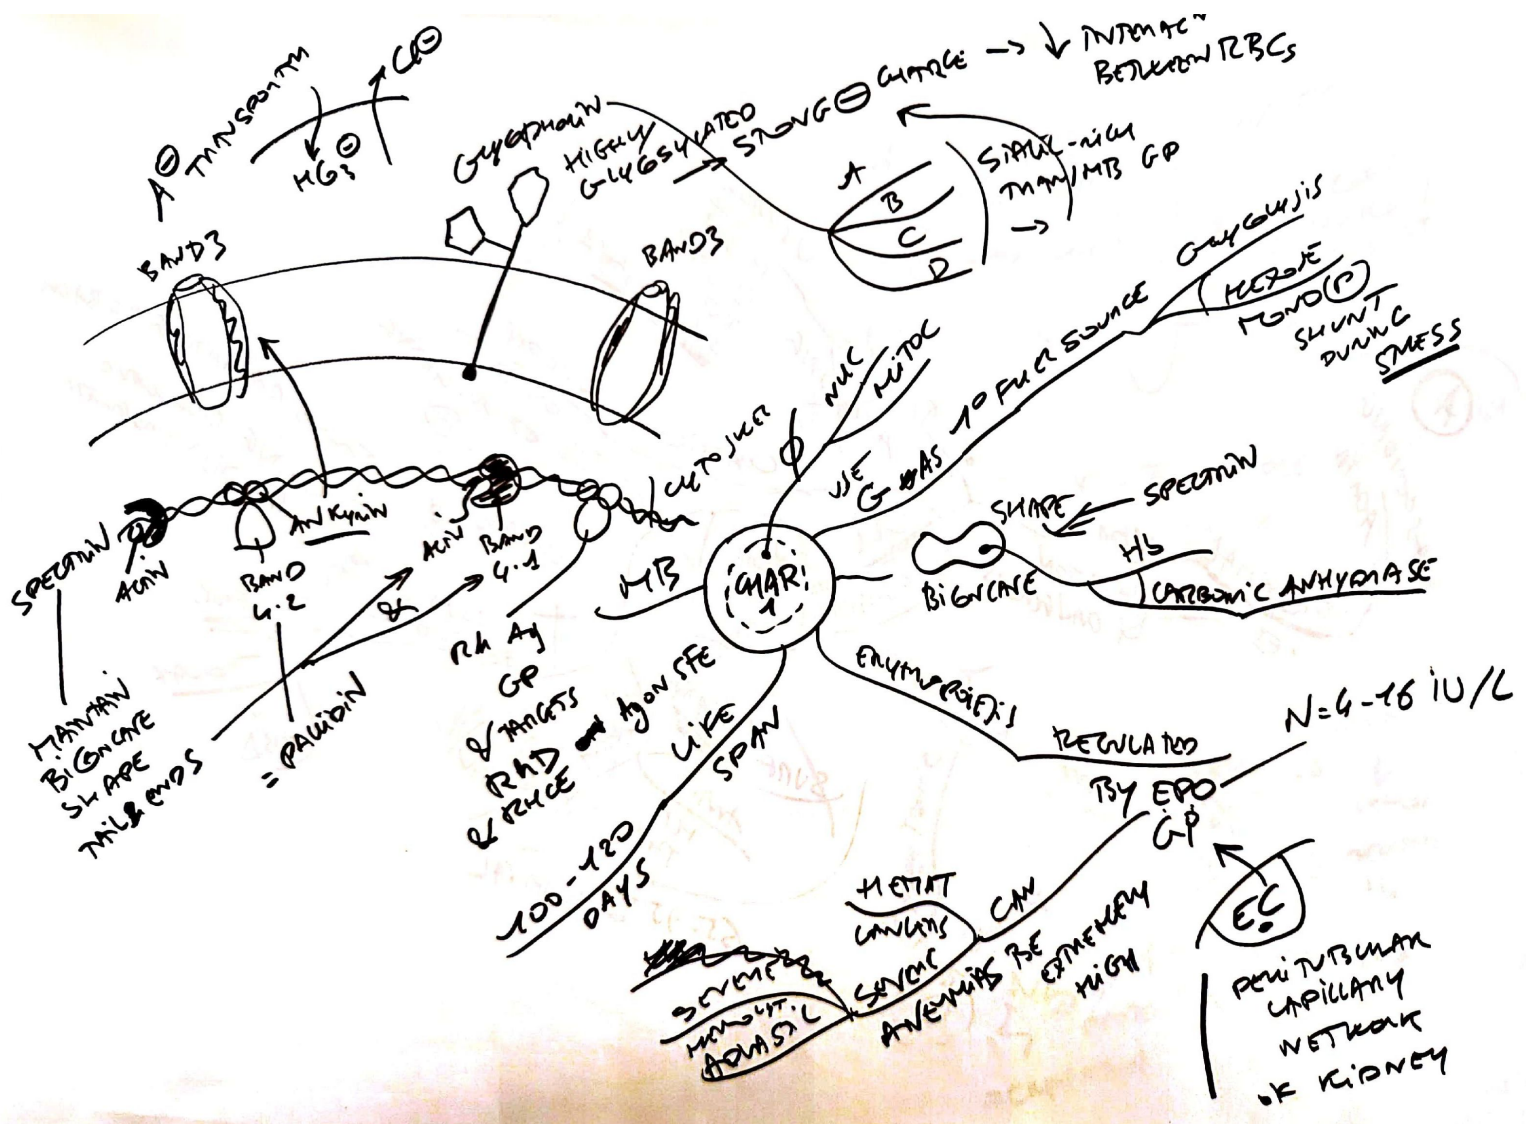 A⊖ TRANSPORTER
HCO3⊖
Cl⊖
GLYCOPHORIN
HIGHLY
GLYCOSYLATED
→ STRONG ⊖ CHARGE → ↓ INTERAC°
BETWEEN RBCs
A
B
C
D
SIALIC-RICH
TRANSMB GP
→
BAND3
BAND3
SPECTRIN
ACTIN
ANKYRIN
BAND
4.2
= PALLIDIN
ACTIN
BAND
4.1
&
CYTOSKEL
MAINTAIN
BICONCAVE
SHAPE
TAIL ENDS
Rh Ag
GP
& TARGETS
RHD
& RHCE
Ag ON SFE
MB
CHAR
1
NUC
MITOC
USE
G AS 1° FUEL SOURCE
GLYCOLYSIS
HEXOSE
MONO Ⓟ
SHUNT
DURING
STRESS
SHAPE
SPECTRIN
BICONCAVE
Hb
CARBONIC ANHYDRASE
ERYTHROPOIESIS
REGULATED
BY EPO
GP
N=4-16 IU/L
EC
PERITUBULAR
CAPILLARY
NETWORK
OF KIDNEY
CAN
BE
EXTREMELY
HIGH
HEMAT
CANCERS
SEVERE
ANEMIAS
SEVERE
HEMOLYT.
APLASTIC
LIFE
SPAN
100-120
DAYS